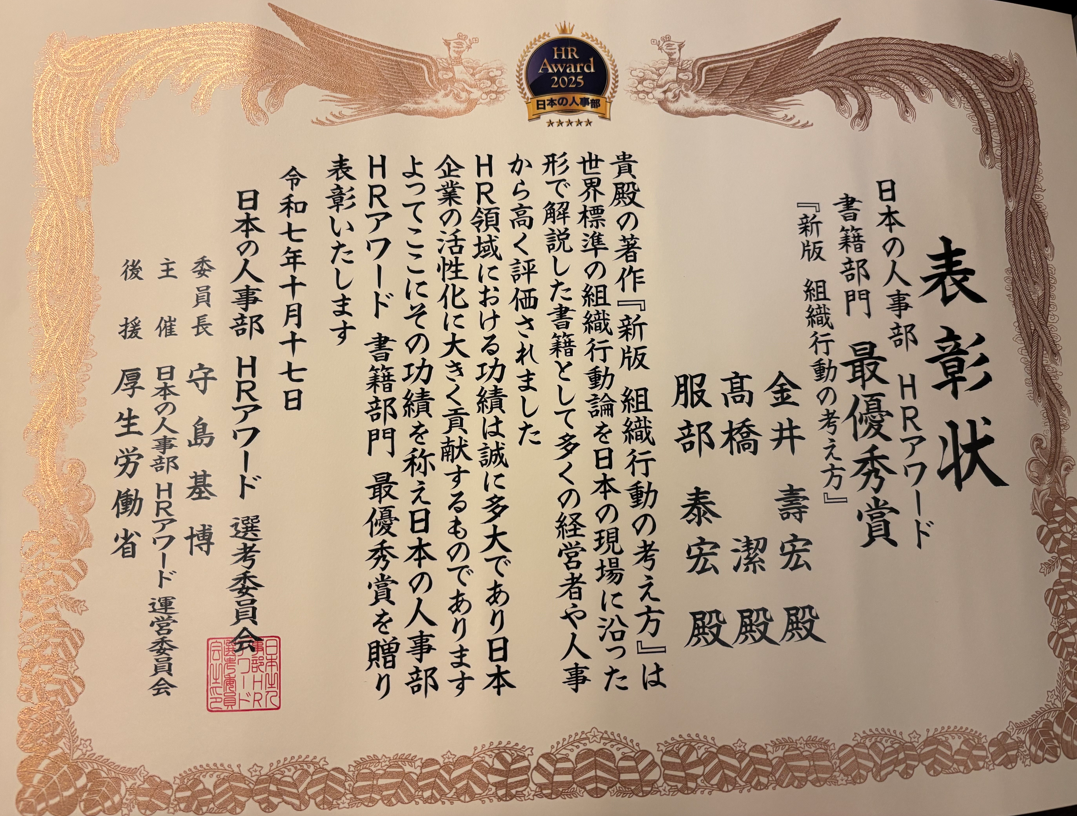 HR
Award
2025
日本の人事部
表彰状
日本の人事部 HRアワード
書籍部門 最優秀賞
『新版 組織行動の考え方』
金井 壽宏 殿
髙橋 潔 殿
服部 泰宏 殿
貴殿の著作『新版 組織行動の考え方』は
世界標準の組織行動論を日本の現場に沿った
形で解説した書籍として多くの経営者や人事
から高く評価されました
HR領域における功績は誠に多大であり日本
企業の活性化に大きく貢献するものであります
よってここにその功績を称え日本の人事部
HRアワード 書籍部門 最優秀賞を贈り
表彰いたします
令和七年十月十七日
日本の人事部 HRアワード 選考委員会
委員長 守島基博
主催 日本の人事部 HRアワード 運営委員会
後援 厚生労働省